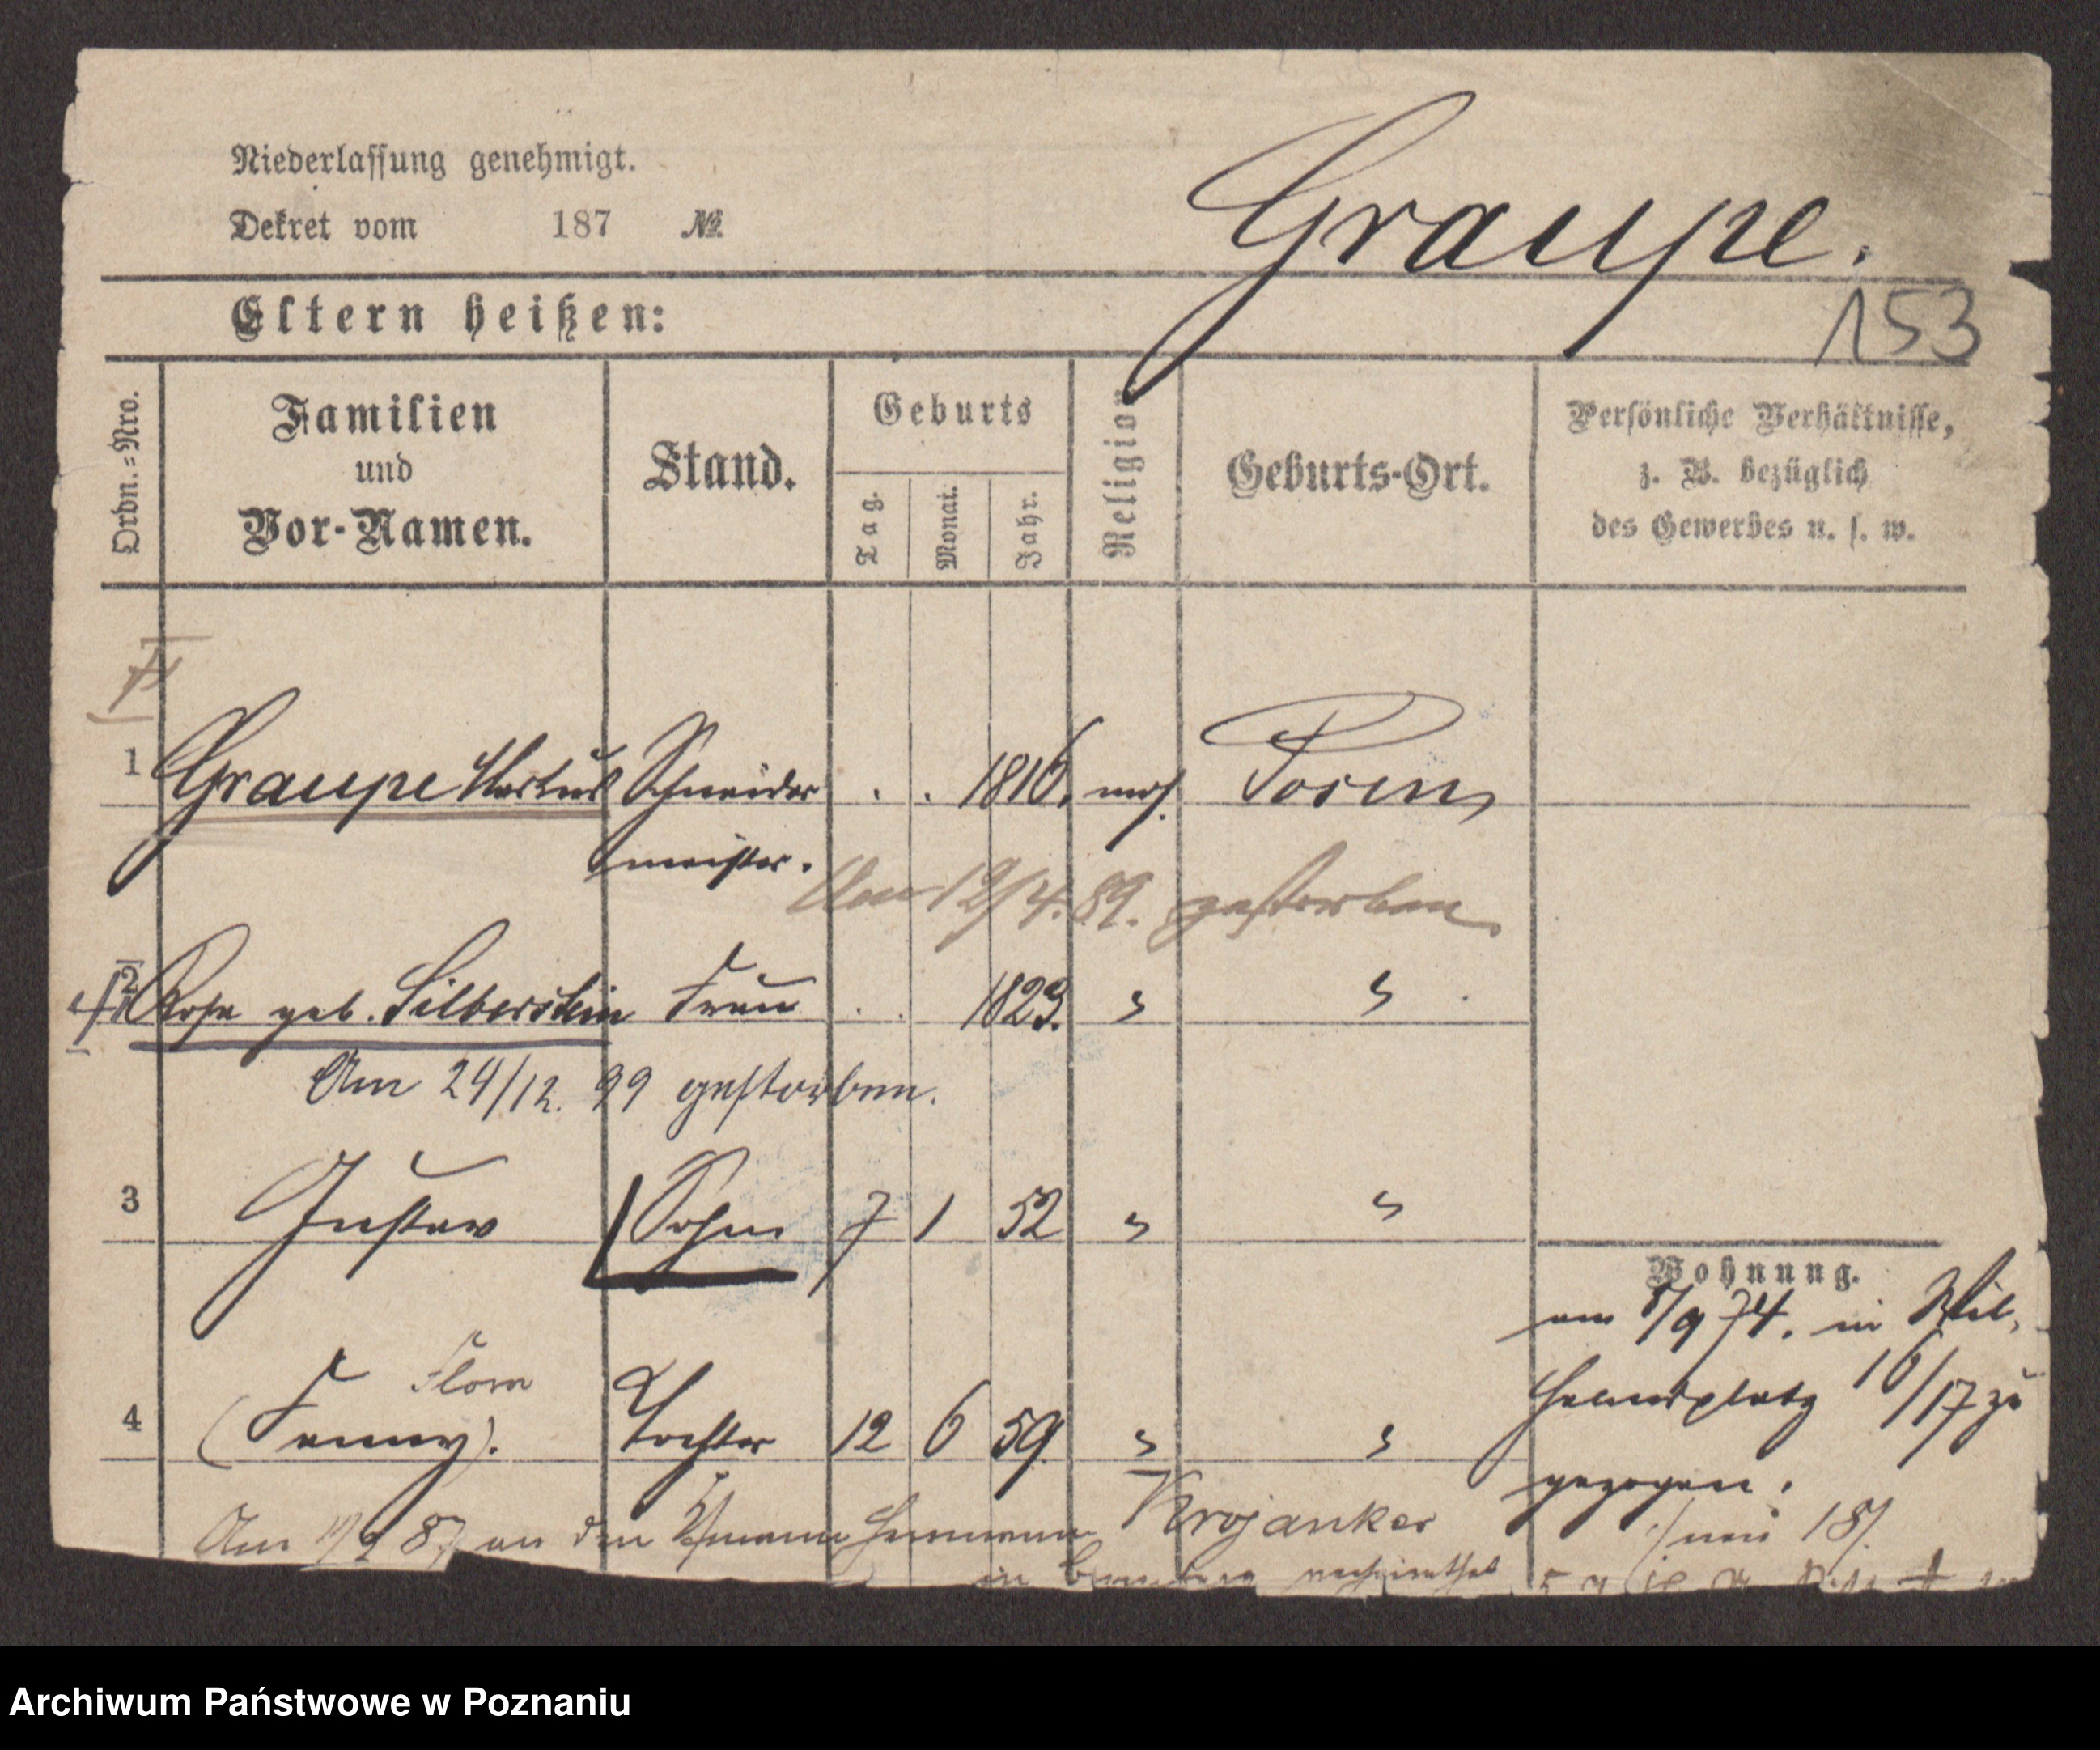 Niederlassung genehmigt.
Dekret vom 187 №
Graupe.
Eltern heißen:
153
Ordn.=Nro.
Familien
und
Vor-Namen.
Stand.
Geburts
Tag.
Monat.
Jahr.
Religion
Geburts-Ort.
Persönliche Verhältnisse,
z. B. bezüglich
des Gewerbes u. s. w.
1 Graupe Markus Schneider . . 1816. mos. Posen
meister.
Am 12/4. 89. gestorben
2 Rosa geb. Silberstein Frau . . 1823. "
"
Am 24/12. 99 gestorben.
3 Gustav Sohn 7 1 52 " "
Wohnung.
am 8/9 74. in Wil-
helmsplatz 16/17 zu
gezogen.
Flora
4 (Fanny). Tochter 12 6 59. " "
Am 87 an den Hermann Krojanker
in verheirathet
Archiwum Państwowe w Poznaniu